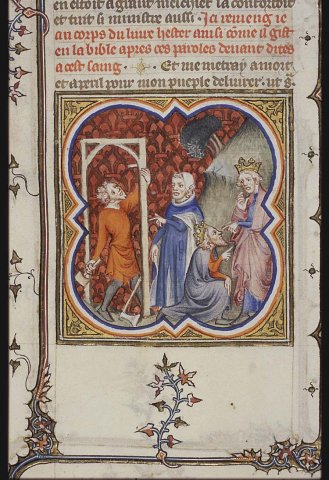 en estoit a grant meschief la confortoit
et tuit si ministre aussi Ja reuieng ie
au corps du liure hester ainsi come il gist
en la bible apres ces paroles deuant dites
a cest saing Et me metray a mort
et a peril pour mon pueple deliurer ut s